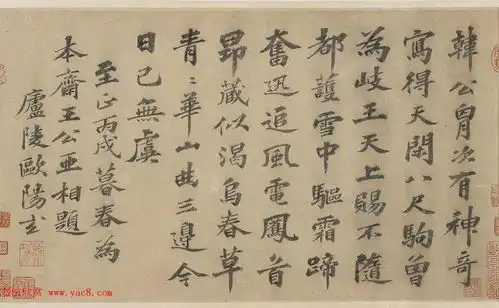 韓公胷次有神奇
寫得天閑八尺駒曾
為岐王天上賜不隨
都護雪中驅霜蹄
奮迅追風電鳳首
昂藏似渴烏春草
青〻華山曲三邊今
日已無虞
至正丙戌暮春為
本齋王公亞相題
廬陵歐陽玄
www.yac8.com